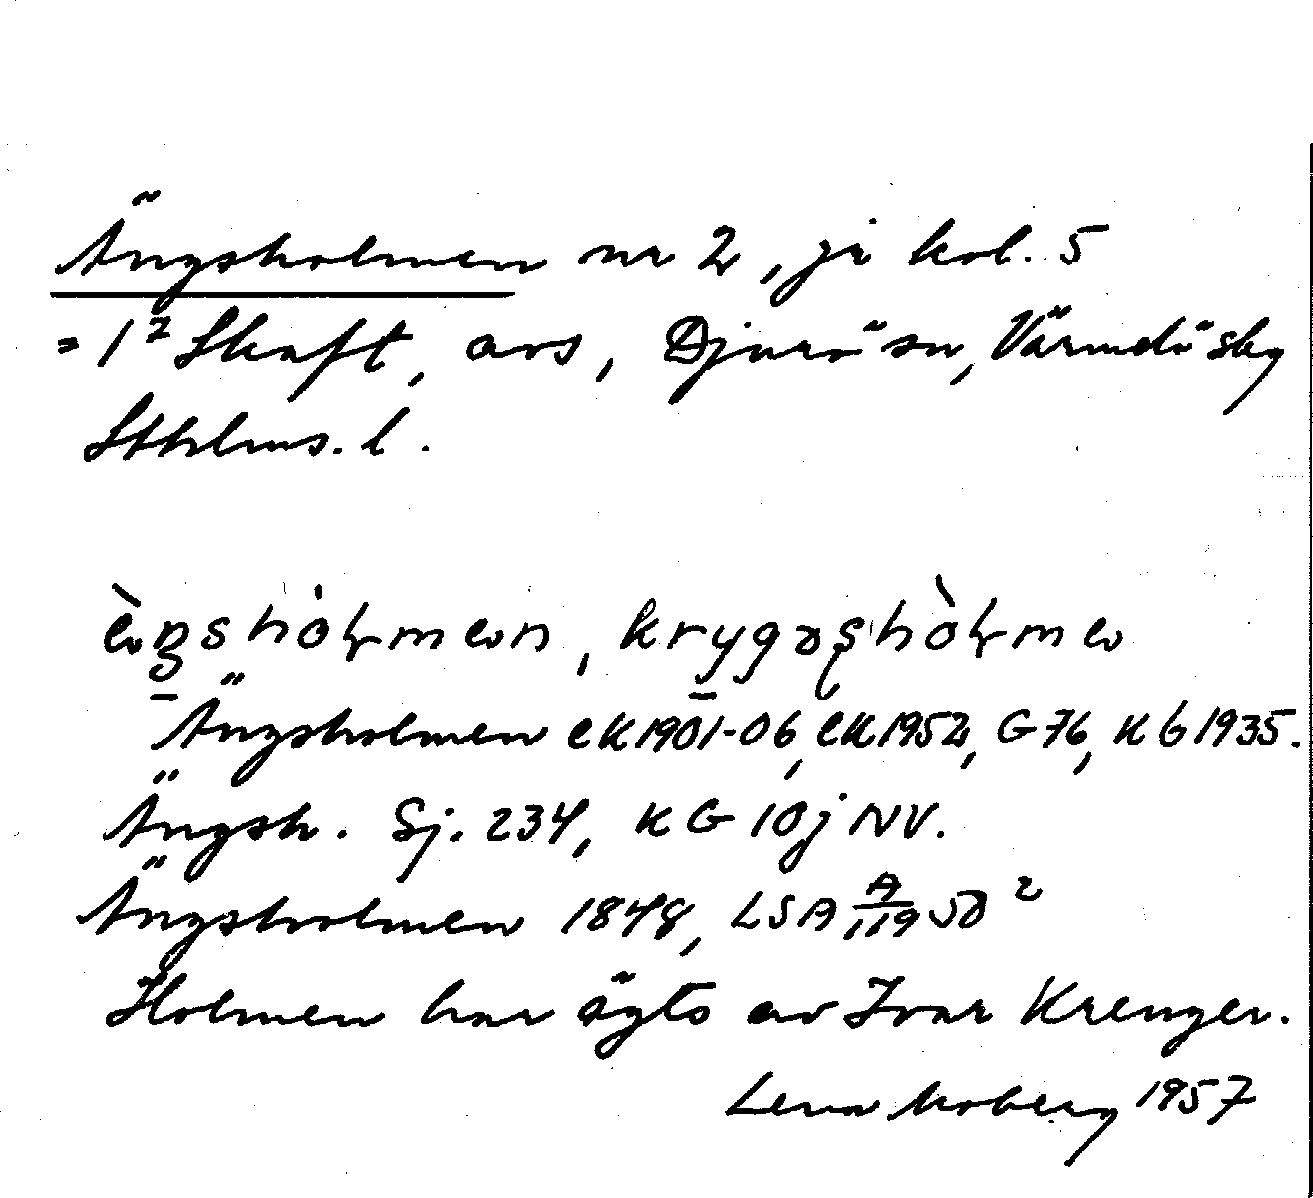 Ängsholmen nr 2, jr kol. 5
= 1⁷ Skaft, avs, Djurö sn, Värmdö sky
Sthlms. l.
Ängsholmen eK 1901-06, eK 1952, G 76, KG 1935.
Ängsh. Sj. 234, KG 10j NV.
Ängsholmen 1848, LSA A/119 50²
Holmen har ägts av Ivar Kreuger.
Lena Moberg 1957